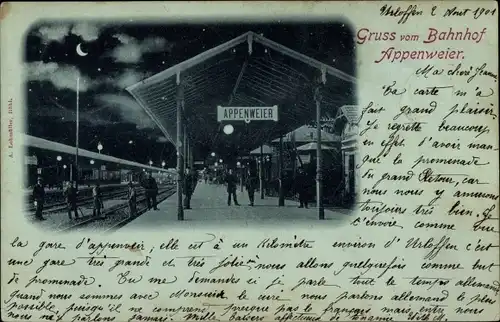 Urloffen 2 Aout 1901
Gruss vom Bahnhof
Appenweier.
Ma chère Jeanne,
Ta carte m'a
fait grand plaisir.
Je regrette beaucoup
en effet d'avoir man-
qué la promenade
du grand car
nous nous y amusons
très bien. Je
t'envoie comme
APPENWEIER
la gare d'appenweier, elle est à un Kilomètre environ d'Urloffen c'est
une gare très grande et très jolie, nous allons quelquefois comme but
de promenade Tu me demandes si je parle tout le temps allemand
Quand nous sommes avec Monsieur le curé, nous parlons allemand le plus
possible, puisqu'il ne comprend presque pas le français mais entre nous
nous ne parlons jamais. Mille baisers affectueux de